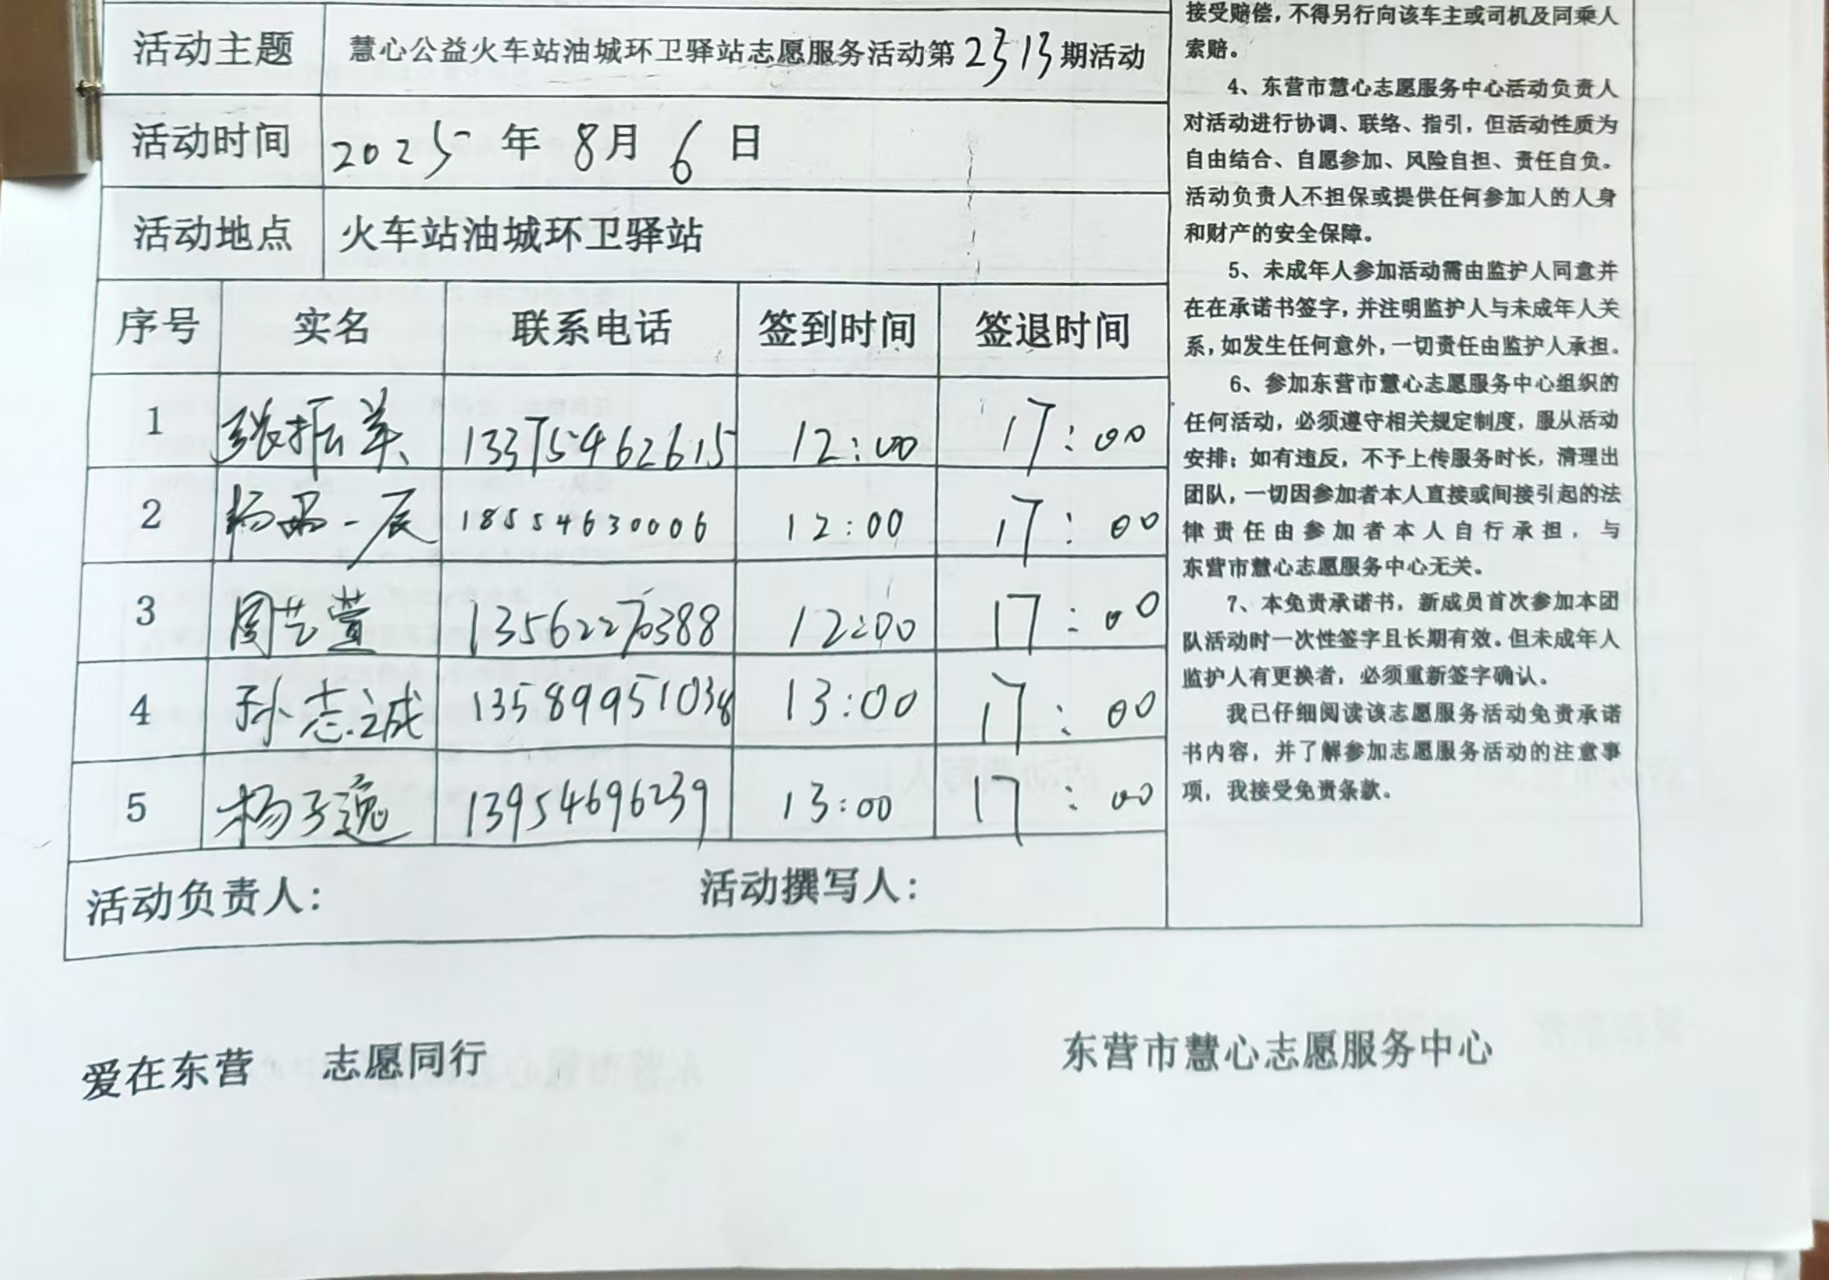 活动主题 慧心公益火车站油城环卫驿站志愿服务活动第2313期活动
活动时间 2025年8月6日
活动地点 火车站油城环卫驿站
序号 实名 联系电话 签到时间 签退时间
1 张振英 13375462615 12:00 17:00
2 杨 一辰 18554630006 12:00 17:00
3 周艺萱 13562270388 12:00 17:00
4 孙志诚 13589951038 13:00 17:00
5 杨子逸 13954696239 13:00 17:00
活动负责人: 活动撰写人:
接受赔偿，不得另行向该车主或司机及同乘人
索赔。
4、东营市慧心志愿服务中心活动负责人
对活动进行协调、联络、指引，但活动性质为
自由结合、自愿参加、风险自担、责任自负。
活动负责人不担保或提供任何参加人的人身
和财产的安全保障。
5、未成年人参加活动需由监护人同意并
在在承诺书签字，并注明监护人与未成年人关
系，如发生任何意外，一切责任由监护人承担。
6、参加东营市慧心志愿服务中心组织的
任何活动，必须遵守相关规定制度，服从活动
安排；如有违反，不予上传服务时长，清理出
团队，一切因参加者本人直接或间接引起的法
律责任由参加者本人自行承担，与
东营市慧心志愿服务中心无关。
7、本免责承诺书，新成员首次参加本团
队活动时一次性签字且长期有效。但未成年人
监护人有更换者，必须重新签字确认。
我已仔细阅读该志愿服务活动免责承诺
书内容，并了解参加志愿服务活动的注意事
项，我接受免责条款。
爱在东营 志愿同行
东营市慧心志愿服务中心